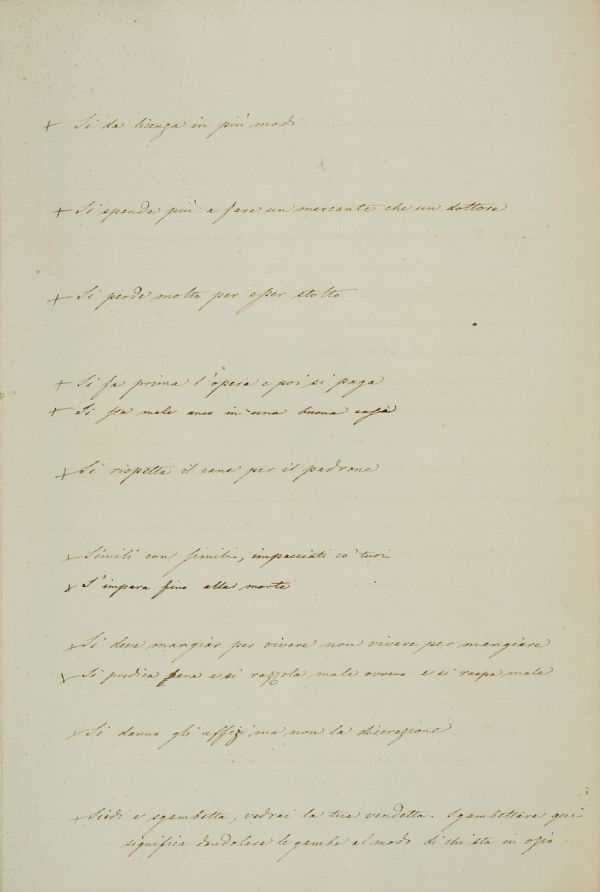 + Si da licenza in più modi
+ Si spende più a fare un mercante che un dottore
+ Si perde molto per esser stolto
+ Si fa prima l'opera e poi si paga
+ Si sta male anco in una buona cassa
+ Si rispetta il cane per il padrone
+ Simili con simili, impacciati co' tuoi
+ S'impara fino alla morte
+ Si deve mangiar per vivere non vivere per mangiare
+ Si predica bene e si razzola male ovvero e si raspa male
+ Si danno gli uffizi ma non la discrezione
+ Siedi e sgambetta, vedrai la tua vendetta. Sgambettare qui
significa dondolare le gambe al modo di chi sta in ozio.